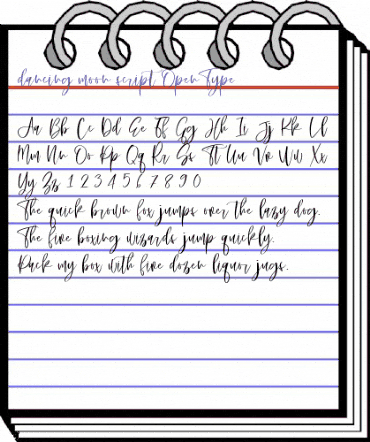 dancing moon script Open Type
Aa Bb Cc Dd Ee Ff Gg Hh Ii Jj Kk Ll
Mm Nn Oo Pp Qq Rr Ss Tt Uu Vv Ww Xx
Yy Zz 1 2 3 4 5 6 7 8 9 0
The quick brown fox jumps over the lazy dog.
The five boxing wizards jump quickly.
Pack my box with five dozen liquor jugs.